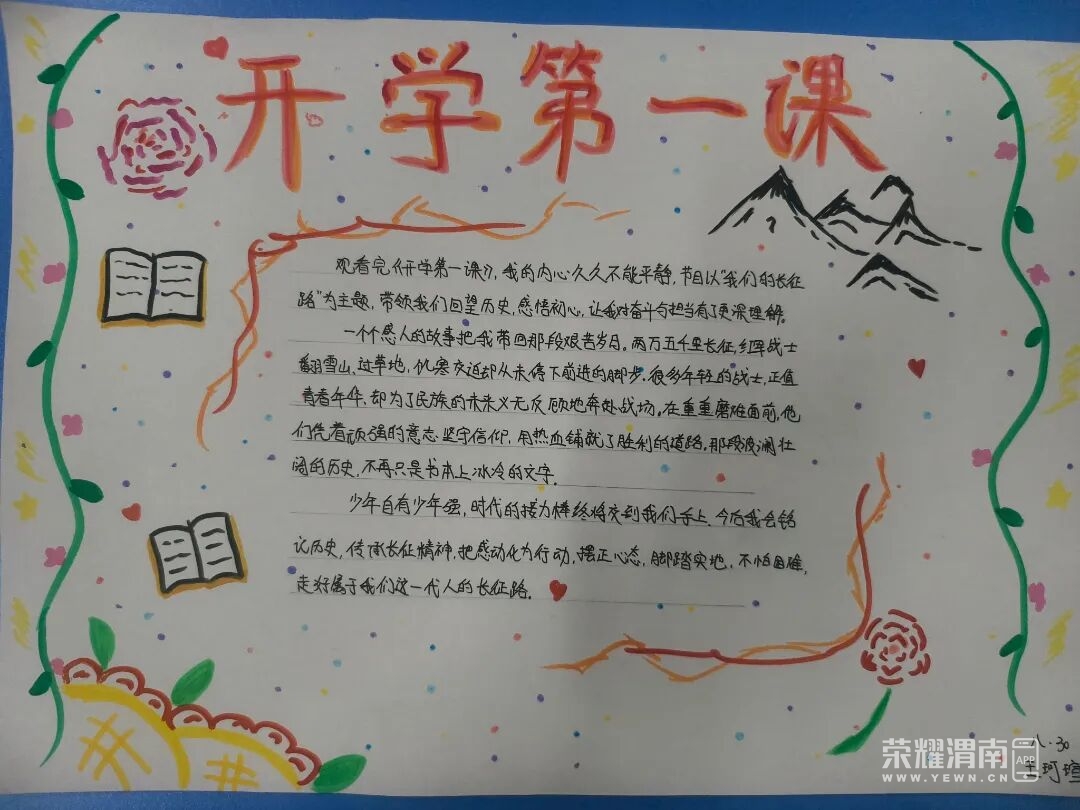 开学第一课
观看完《开学第一课》，我的内心久久不能平静，节目以“我们的长征
路”为主题，带领我们回望历史，感悟初心，让我对奋斗与担当有了更深理解。
一个个感人的故事把我带回那段艰苦岁月。两万五千里长征，红军战士
翻雪山，过草地，饥寒交迫却从未停下前进的脚步。很多年轻的战士，正值
青春年华，却为了民族的未来义无反顾地奔赴战场。在重重磨难面前，他
们凭着顽强的意志，坚守信仰，用热血铺就了胜利的道路，那段波澜壮
阔的历史，不再只是书本上冰冷的文字。
少年自有少年强，时代的接力棒终将交到我们手上。今后我会铭
记历史，传承长征精神，把感动化为行动，摆正心态，脚踏实地，不怕困难，
走好属于我们这一代人的长征路。
八.30
王珂瑄
荣耀渭南 APP
WWW.YEWN.CN